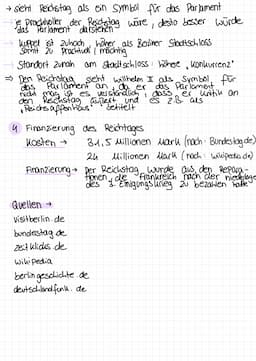 → sieht Reichstag als ein Symbol für das Parlament
→ je prachtvoller der Reichstag wäre, desto besser würde
das Parlament darstehen
→ Kuppel ist zuhoch, höher als Berliner Stadtschloss
somit zu prachtvoll / mächtig
→ Standort zunah am Stadtschloss: Nähere „Konkurrenz"
⇒ Den Reichstag sieht Wilhelm II als Symbol für
das Parlament an, da er das Parlament
nicht mag ist es verständlich, dass er Kritik an
den Reichstag äußert und es z.B. als
„Reichsaffenhaus" betitelt
4 Finanzierung des Reichtages
Kosten → 31.5 Millionen Mark (nach: Bundestag.de)
24 Millionen Mark (nach: Wikipedia.de)
Finanzierung → Der Reichstag wurde aus den Repara-
tionen, die Frankreich nach der Niederlage
des 3. Einigungskrieg zu bezahlen hatte
Quellen →
visitberlin.de
bundestag.de
zeitklicks.de
wikipedia
berlingeschichte.de
deutschlandfunk.de